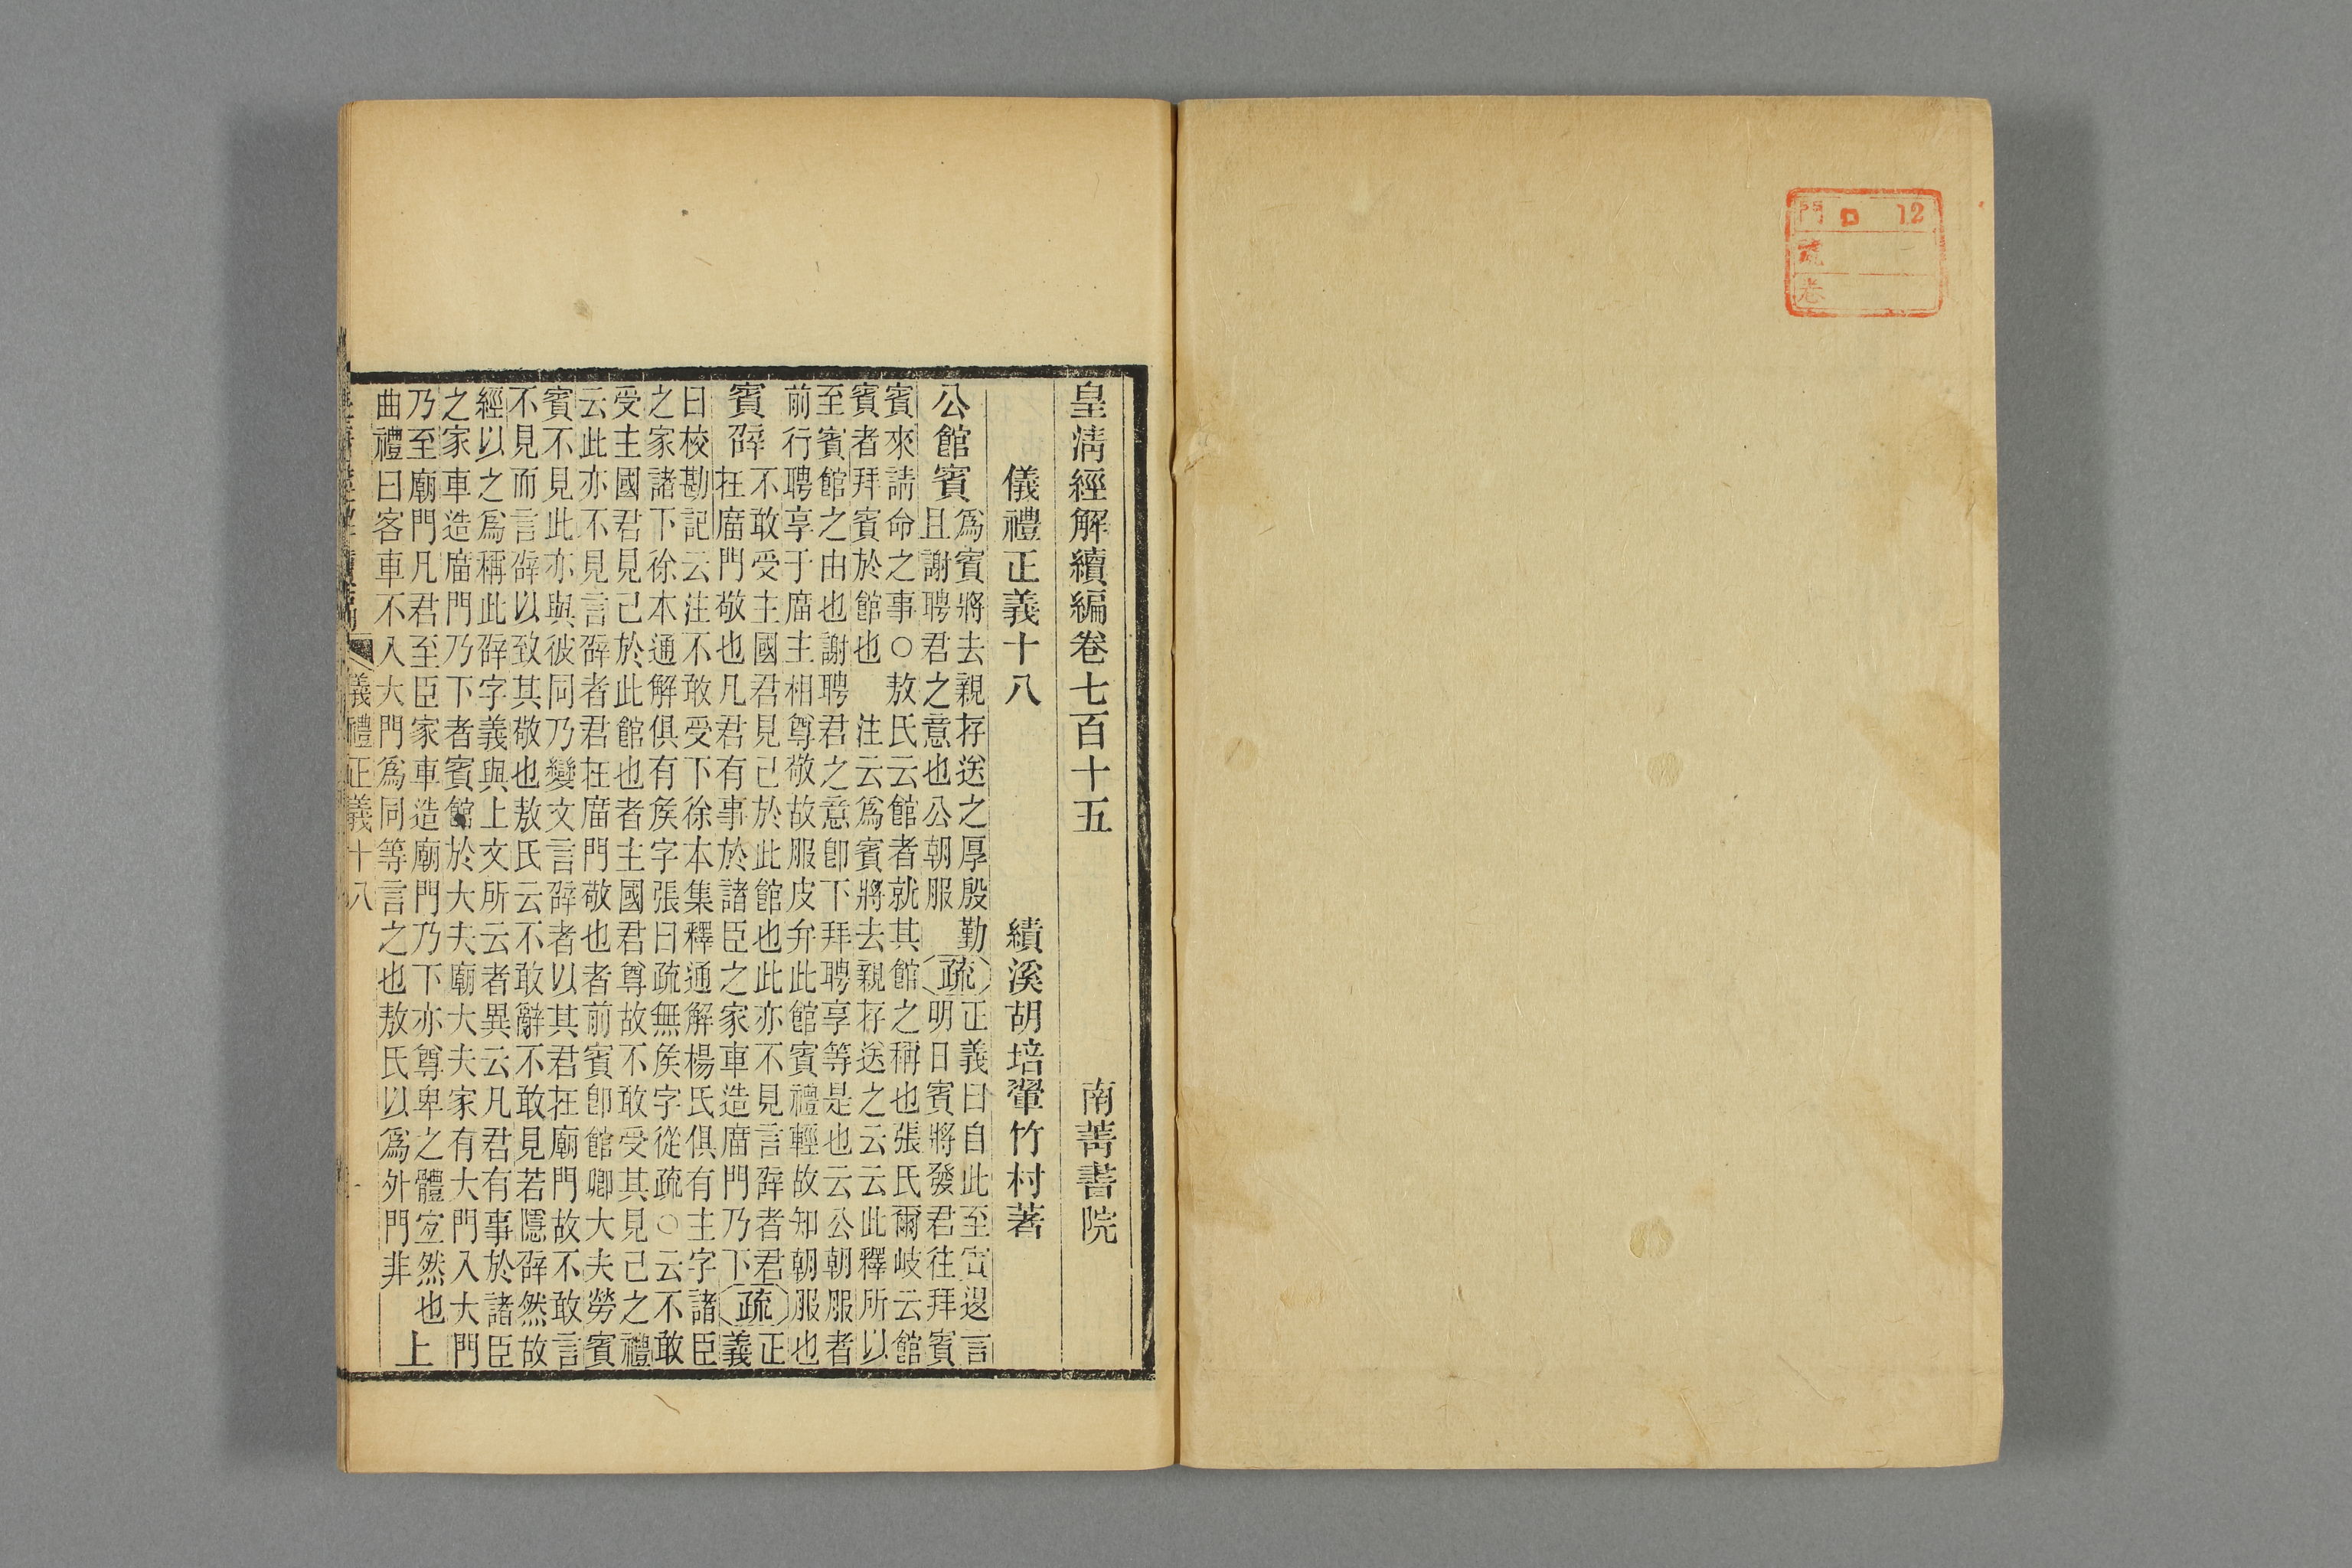 門 ロ 12
號
卷
皇清經解續編卷七百十五 南菁書院
儀禮正義十八 績溪胡培翬竹村著
公館賓 爲賓將去親存送之厚殷勤
且謝聘君之意也公朝服
疏 正義曰自此至賓退言
明日賓將發君往拜賓
賓來請命之事○敖氏云館者就其館之稱也張氏爾岐云館
賓者拜賓於館也 注云爲賓將去親存送之云云此釋所以
至賓館之由也謝聘君之意卽下拜聘享等是也云公朝服者
前行聘享于庿主相尊敬故服皮弁此館賓禮輕故知朝服也
賓辟 不敢受主國君見己於此館也此亦不見言辟者君
在庿門敬也凡君有事於諸臣之家車造庿門乃下
疏 正
義
曰校勘記云注不敢受下徐本集釋通解楊氏俱有主字諸臣
之家諸下徐本通解俱有矦字張曰疏無矦字從疏○云不敢
受主國君見己於此館也者主國君尊故不敢受其見己之禮
云此亦不見言辟者君在庿門敬也者前賓卽館卿大夫勞賓
賓不見此亦與彼同乃變文言辟者以其君在廟門故不敢言
不見而言辟以致其敬也敖氏云不敢辭不敢見若隱辟然故
經以之爲稱此辟字義與上文所云者異云凡君有事於諸臣
之家車造庿門乃下者賓館於大夫廟大夫家有大門入大門
乃至廟門凡君至臣家車造廟門乃下亦尊卑之體宐然也 上
曲禮曰客車不入大門爲同等言之也敖氏以爲外門非
儀禮正義十八